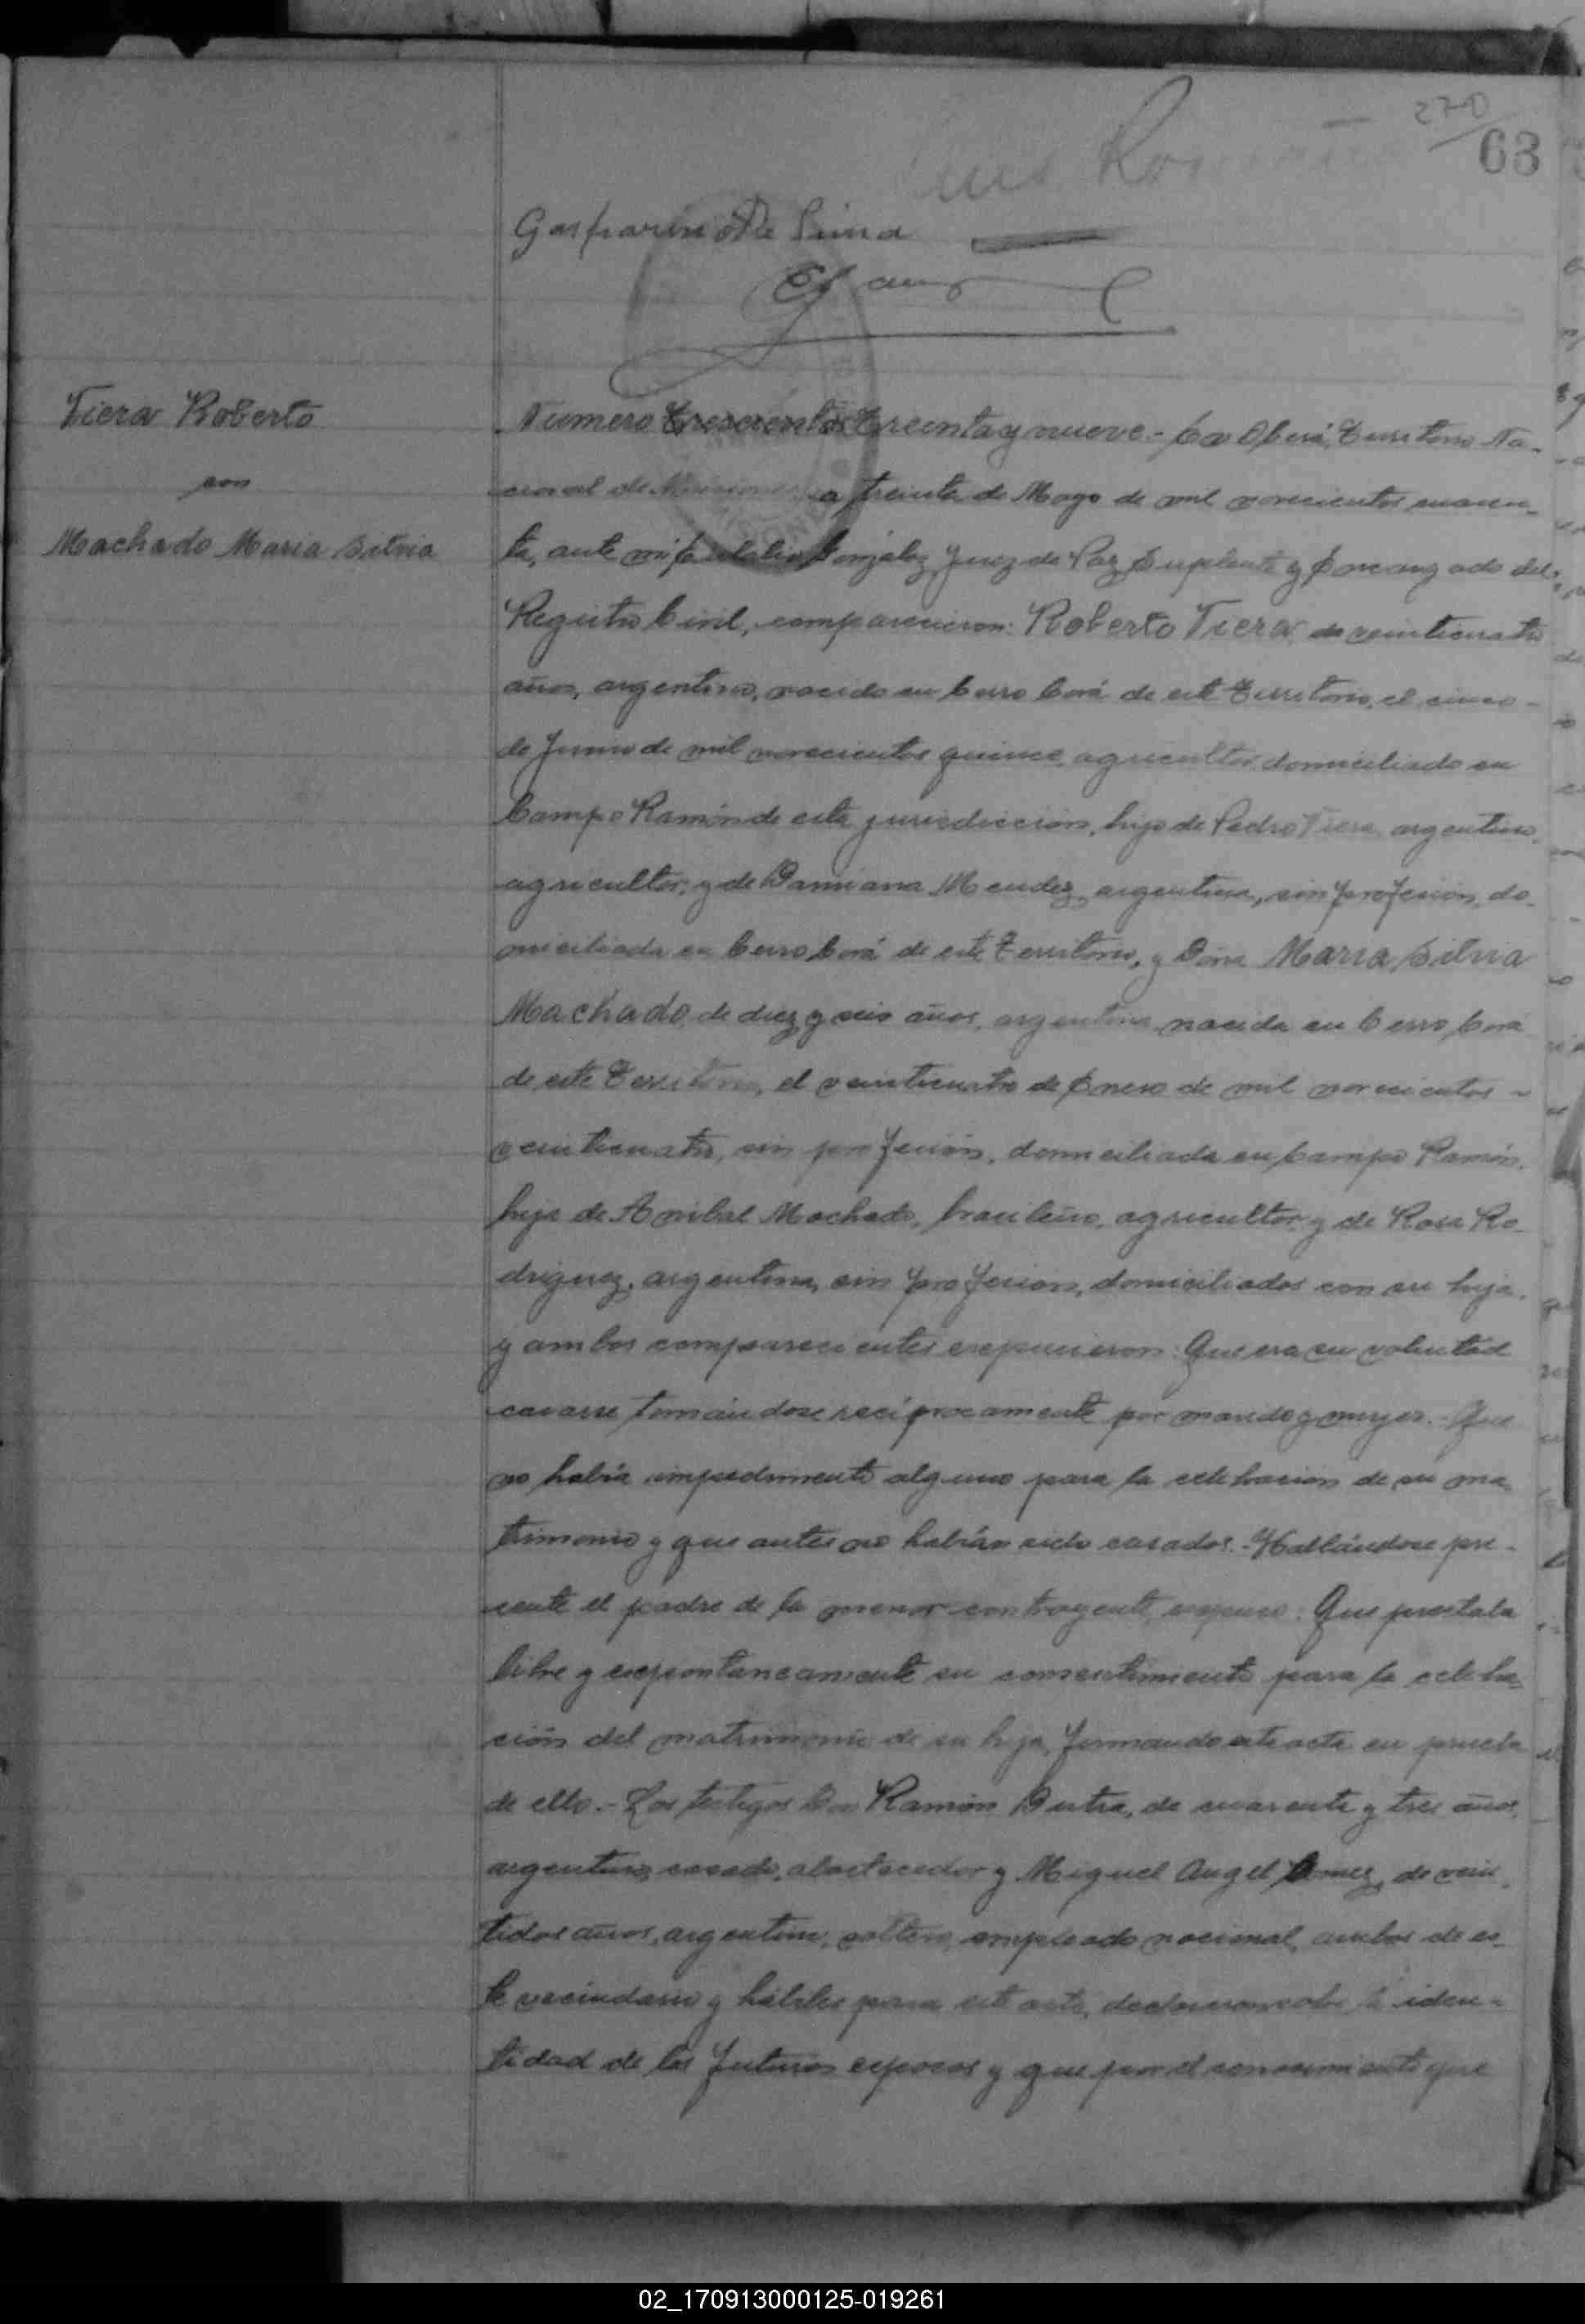 270
63
Gasparino De Lima
Tiera Roberto
con
Machado Maria Silvia
Número Trescientos Treinta y nueve.- En Oberá, Territorio Na-
cional de Misiones a treinta de Mayo de mil novecientos cuaren-
ta, ante mi González Juez de Paz Suplente y Encargado del
Registro Civil, comparecieron: Roberto Tiera de veinticuatro
años, argentino, nacido en Cerro Corá de este Territorio, el cinco -
de Junio de mil novecientos quince, agricultor, domiciliado en
Campo Ramón de esta jurisdicción, hijo de Pedro Tiera, argentino,
agricultor, y de Damiana Mendez, argentina, sin profesión, do-
miciliada en Cerro Corá de este Territorio, y Doña Maria Silvia
Machado, de diez y seis años, argentina, nacida en Cerro Corá
de este Territorio, el veinticuatro de Enero de mil novecientos -
veinticuatro, sin profesión, domiciliada en Campo Ramón,
hija de Anibal Machado, brasileño, agricultor y de Rosa Ro-
driguez, argentina, sin profesion, domiciliados con su hija,
y ambos comparecientes expusieron: Que era su voluntad
casarse tomándose recíprocamente por marido y mujer.- Que
no había impedimento alguno para la celebracion de su ma-
trimonio y que antes no habían sido casados.- Hallándose pre-
sente el padre de la menor contrayente, expuso: Que prestaba
libre y expontaneamente su consentimiento para la celebra-
ción del matrimonio de su hija, firmando este acta en prueba
de ello.- Los testigos Don Ramón Dutra, de cuarenta y tres años,
argentino, casado, abastecedor y Miguel Angel Gomez, de vein-
tidos años, argentino, soltero, empleado nacional, ambos de es-
te vecindario y hábiles para este acto, declararon sobre la iden-
tidad de los futuros esposos y que por el conocimiento que
02_170913000125-019261